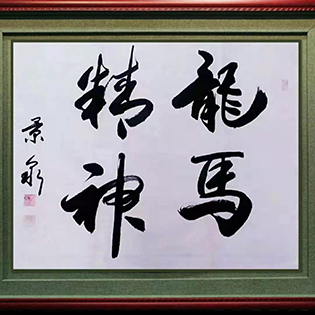 龍馬
精神
景泉